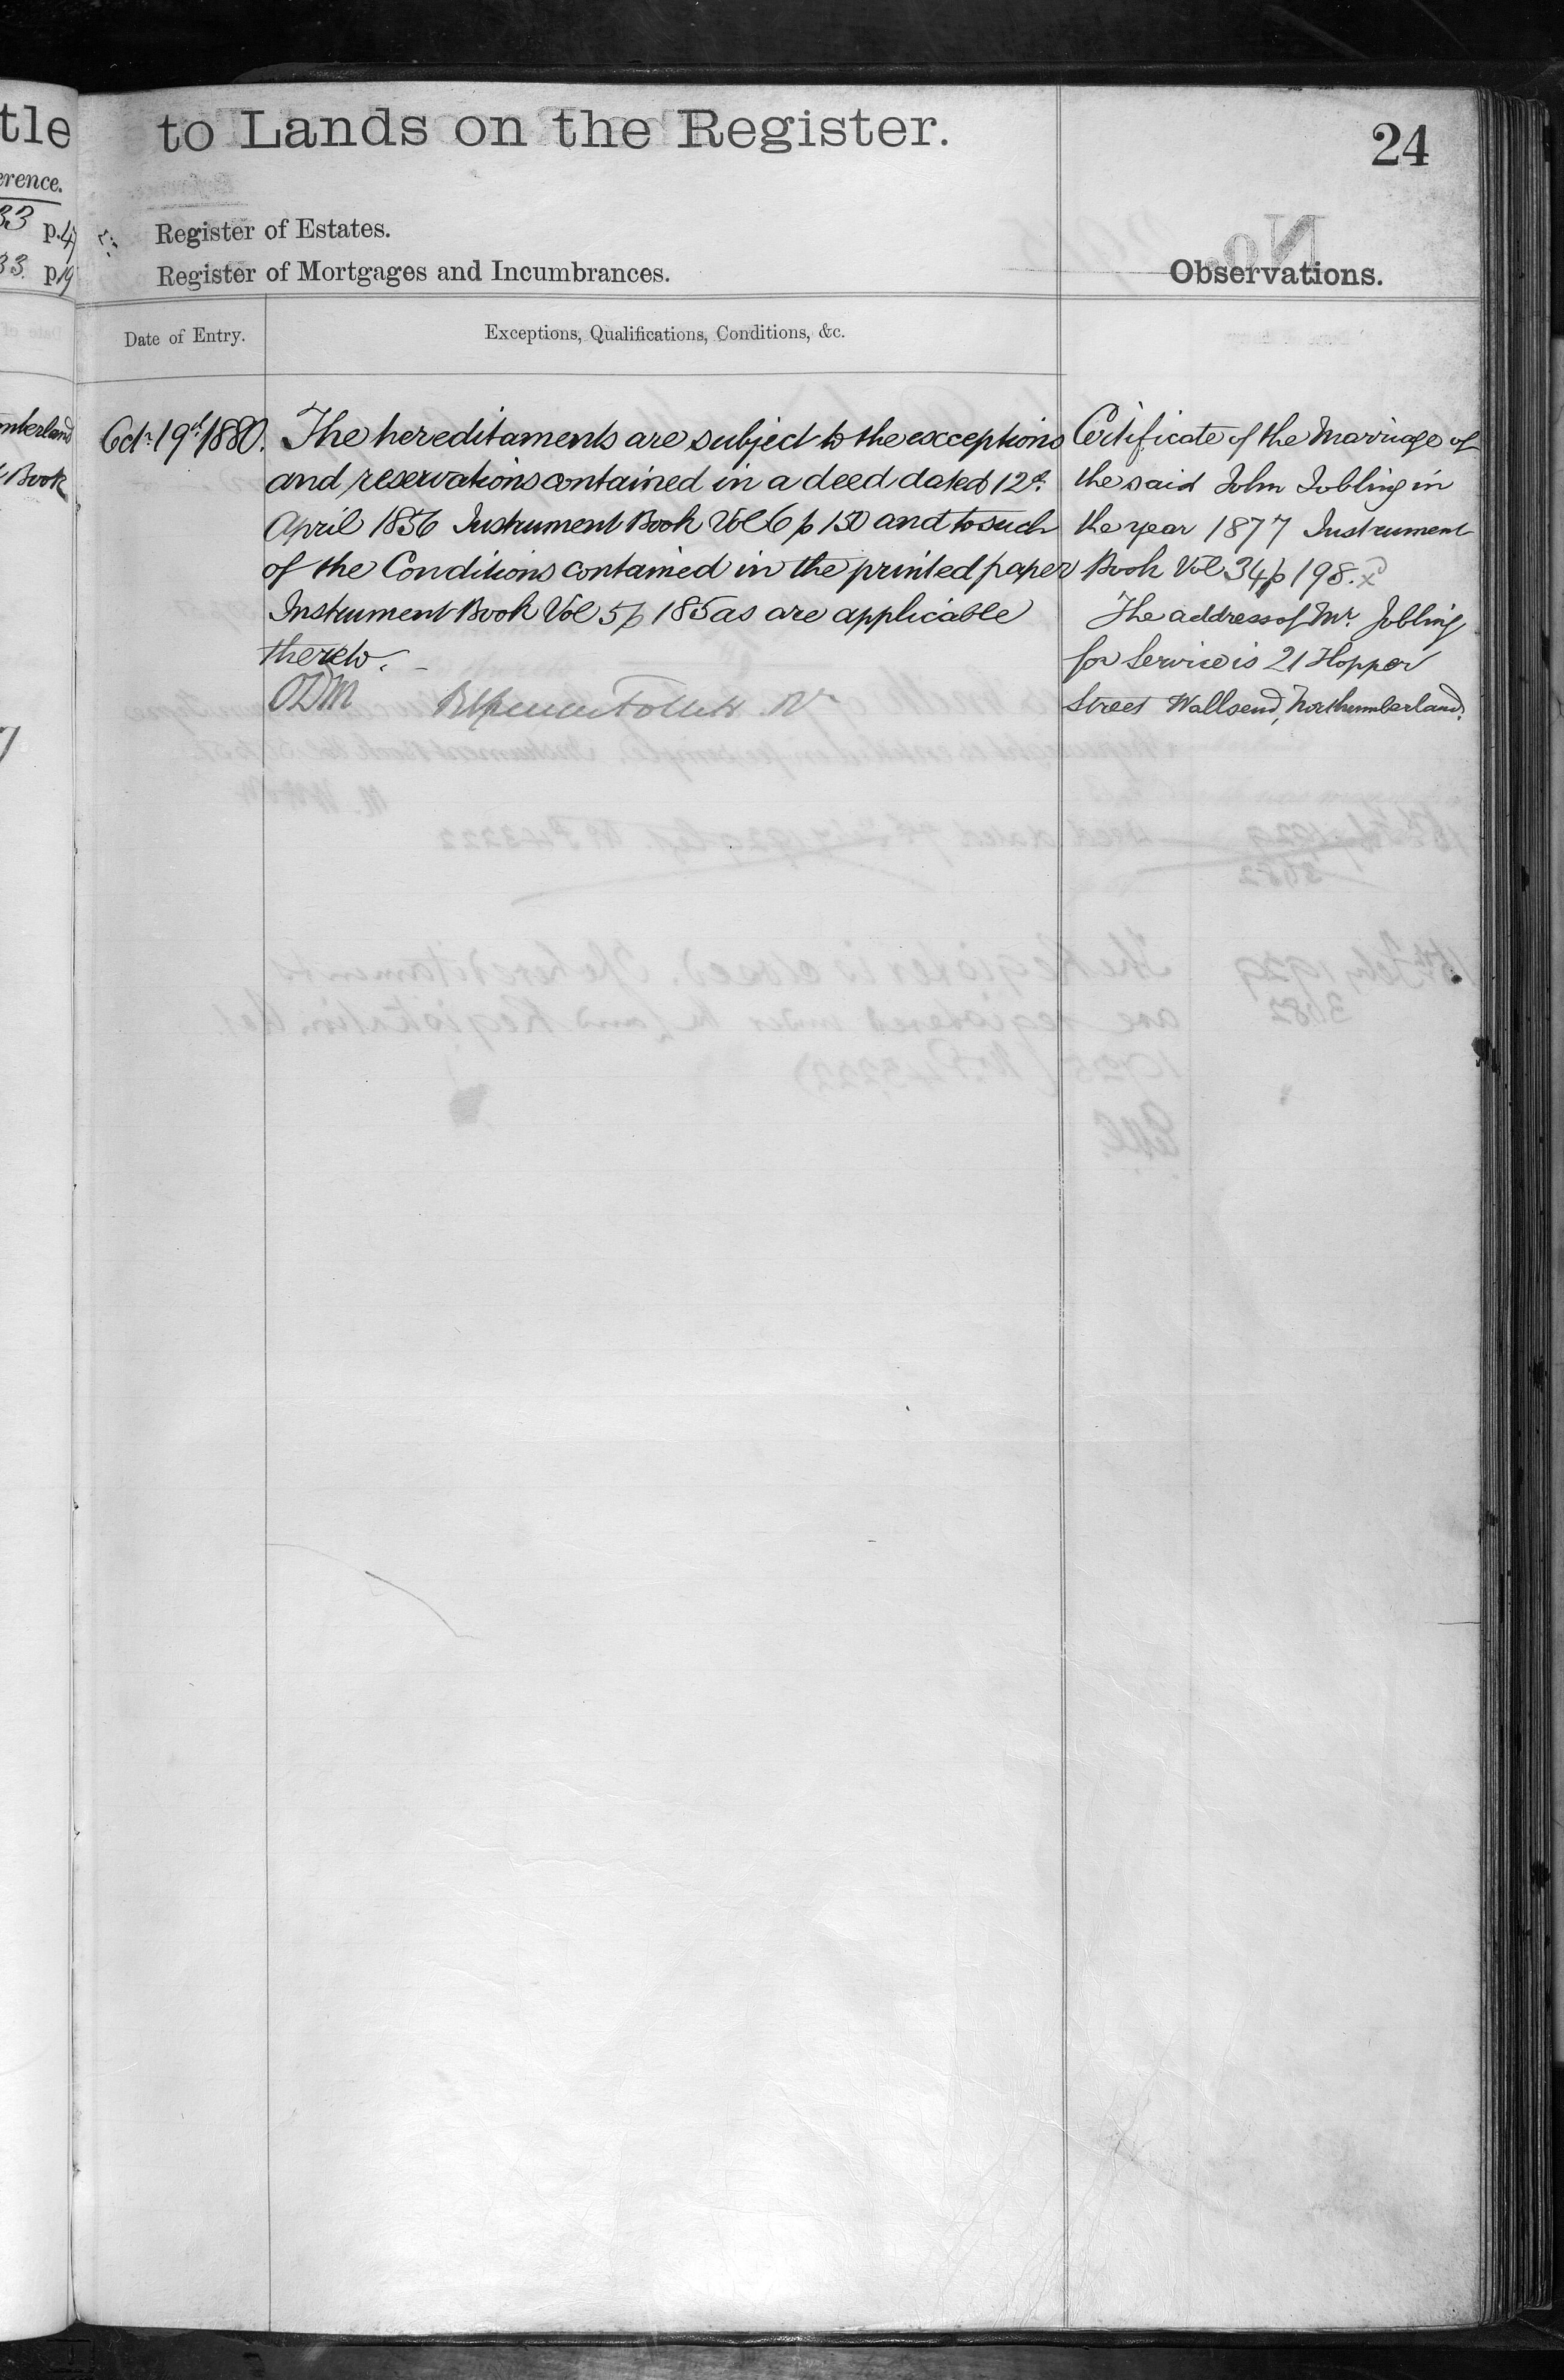 tle
to Lands on the Register.
24
erence.
33 p.4
Register of Estates.
33. p.19
Register of Mortgages and Incumbrances.
Observations.
Date of Entry.
Exceptions, Qualifications, Conditions, &c.
Octr. 19th 1880.
The hereditaments are subject to the exceptions
and reservations contained in a deed dated 12th.
April 1856 Instrument Book Vol 6 p 150 and to such
of the Conditions contained in the printed paper
Instrument Book Vol 5 p 185 as are applicable
thereto.
ODM
Certificate of the Marriage of
the said John Jobling in
the year 1877 Instrument
Book Vol 34 p 198.
The address of Mr. Jobling
for Service is 21 Hopper
Street Wallsend, Northumberland.
mberland
Book